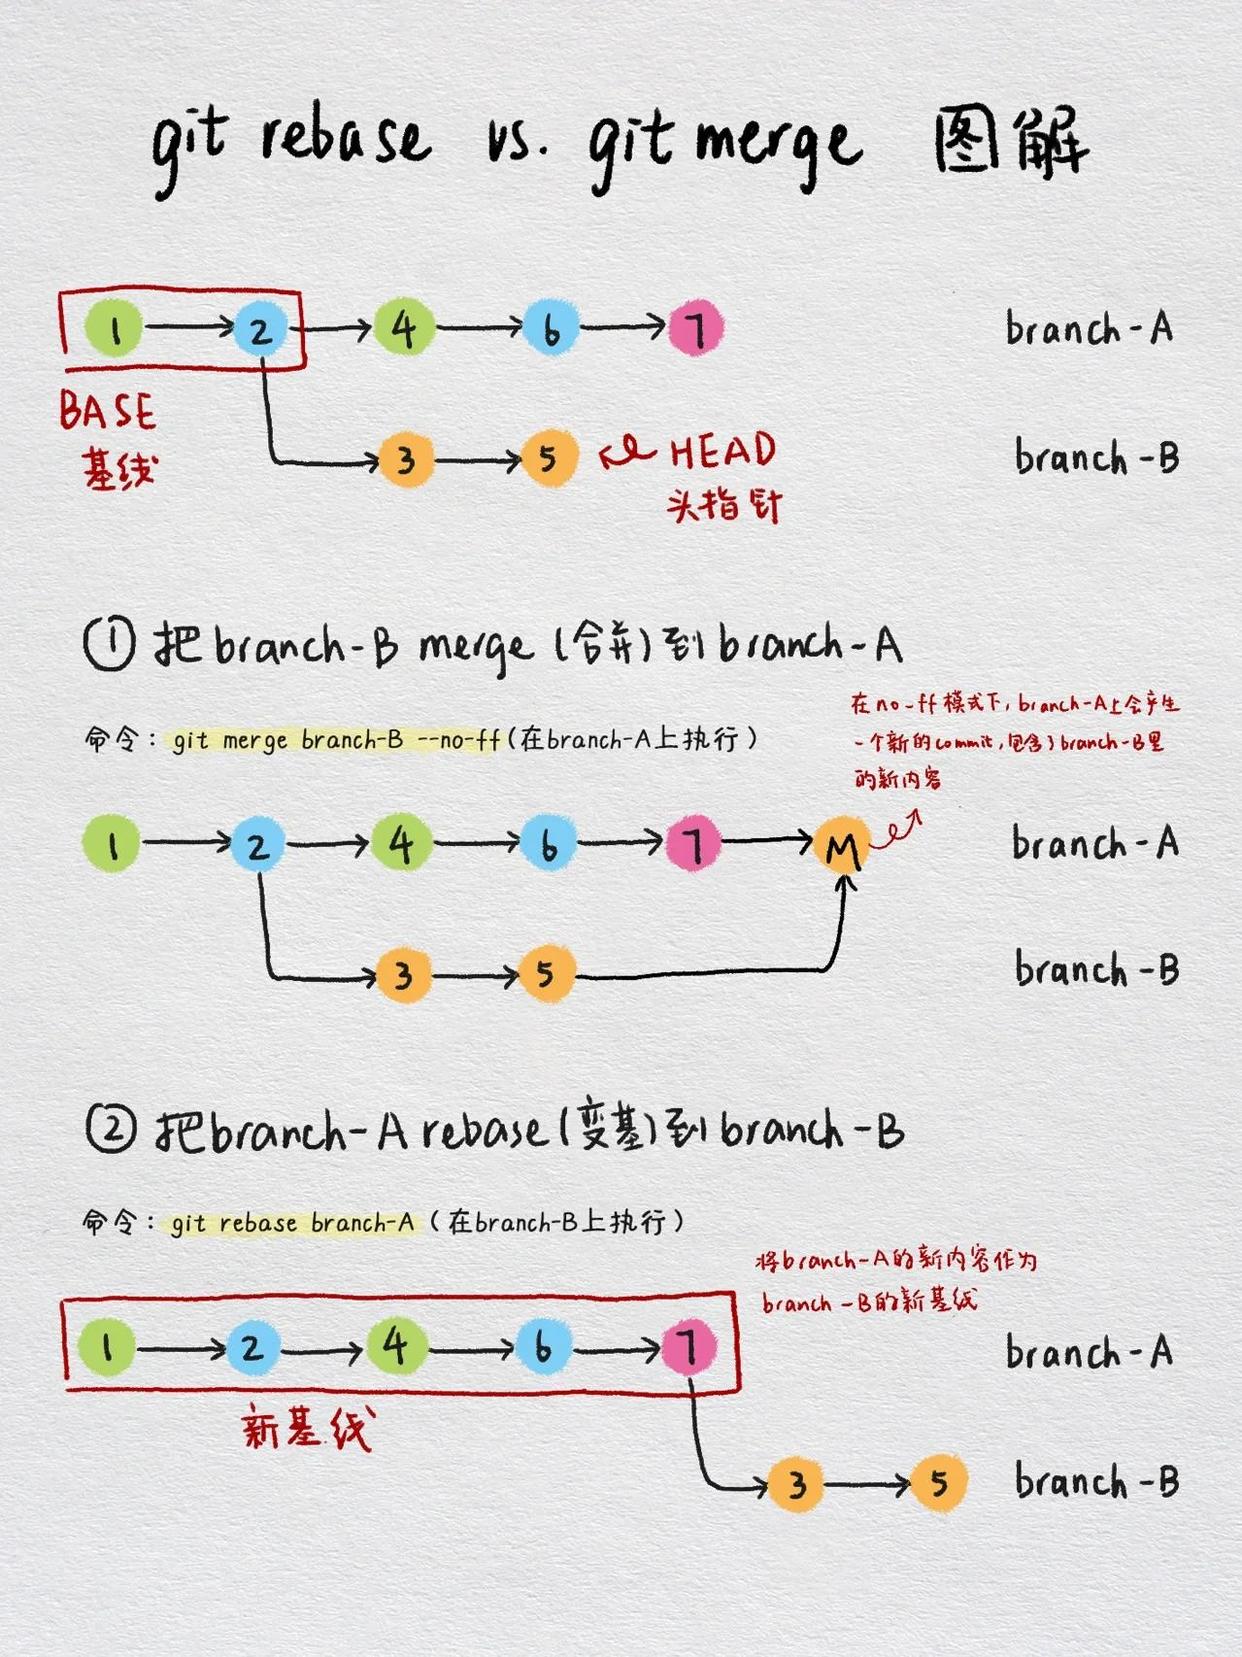 git rebase vs. git merge 图解
1 2 4 6 7 branch-A
BASE
基线
3 5 HEAD branch-B
头指针
① 把branch-B merge (合并)到branch-A
在no-ff模式下, branch-A上会产生
命令: git merge branch-B --no-ff(在branch-A上执行)
一个新的commit, 包含了branch-B里
的新内容
1 2 4 6 7 M branch-A
3 5 branch-B
② 把branch-A rebase(变基)到branch-B
命令: git rebase branch-A (在branch-B上执行)
将branch-A的新内容作为
branch-B的新基线
1 2 4 6 7 branch-A
新基线
3 5 branch-B